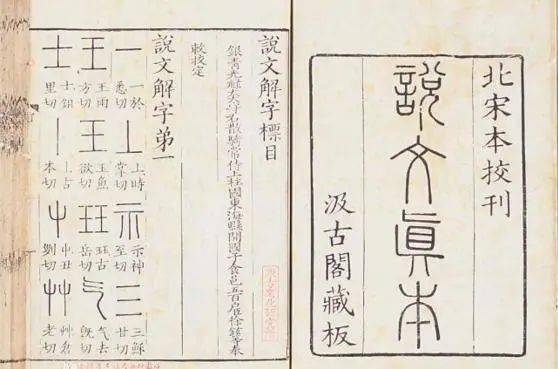 北宋本校刊
說文眞本
汲古閣藏板
說文解字標目
銀青光祿大夫守右散騎常侍上柱國東海縣開國子食邑五百戶臣徐鉉等奉
敕挍定
說文解字弟一
一 一於悉切 丄 上時掌切 示 示神至切 三 三穌甘切
王 王雨方切 玉 玉魚欲切 玨 玨古岳切 气 气去旣切
士 士鉏里切 丨 古本切 屮 屮丑切 艸 艸倉老切